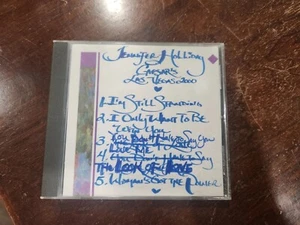 Jennifer Holliday
Caesar's
Las Vegas 2000
1. I'm Still Standing
2. I Only Want To Be
With You
3. You Don't Have To Say You
Love Me
4.
The Look of Love
5. Woman's Got The Power